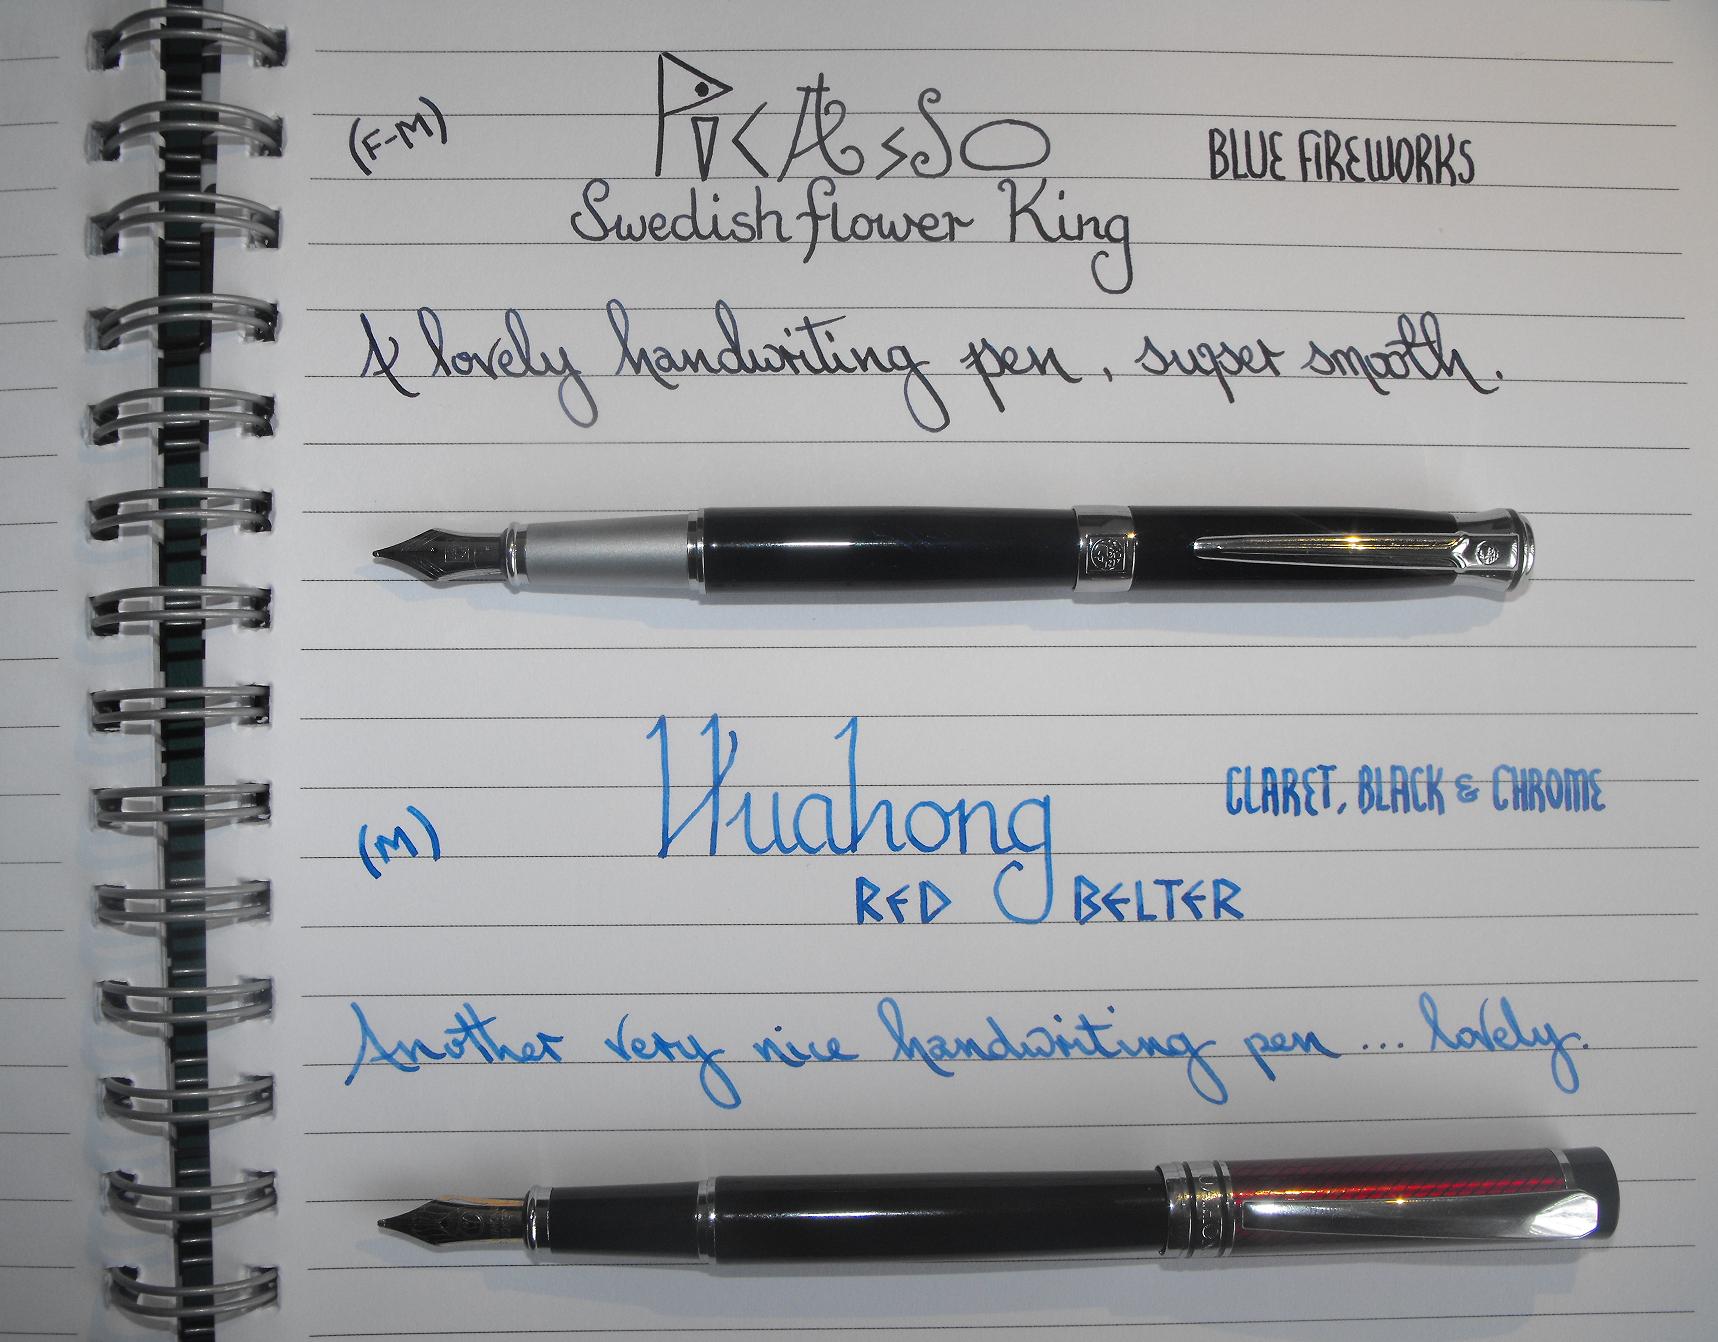 (F-M) PiCAsSO BLUE FiREWORKS
Swedish flower King
A lovely handwriting pen, super smooth.
Huahong CLARET, BLACK & CHROME
(M)
RED BELTER
Another very nice handwriting pen... lovely.